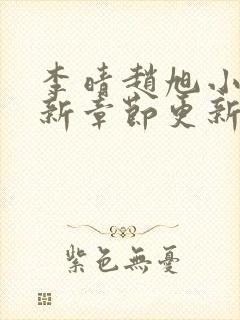 李晴趙旭小
新章節更新
紫色無憂